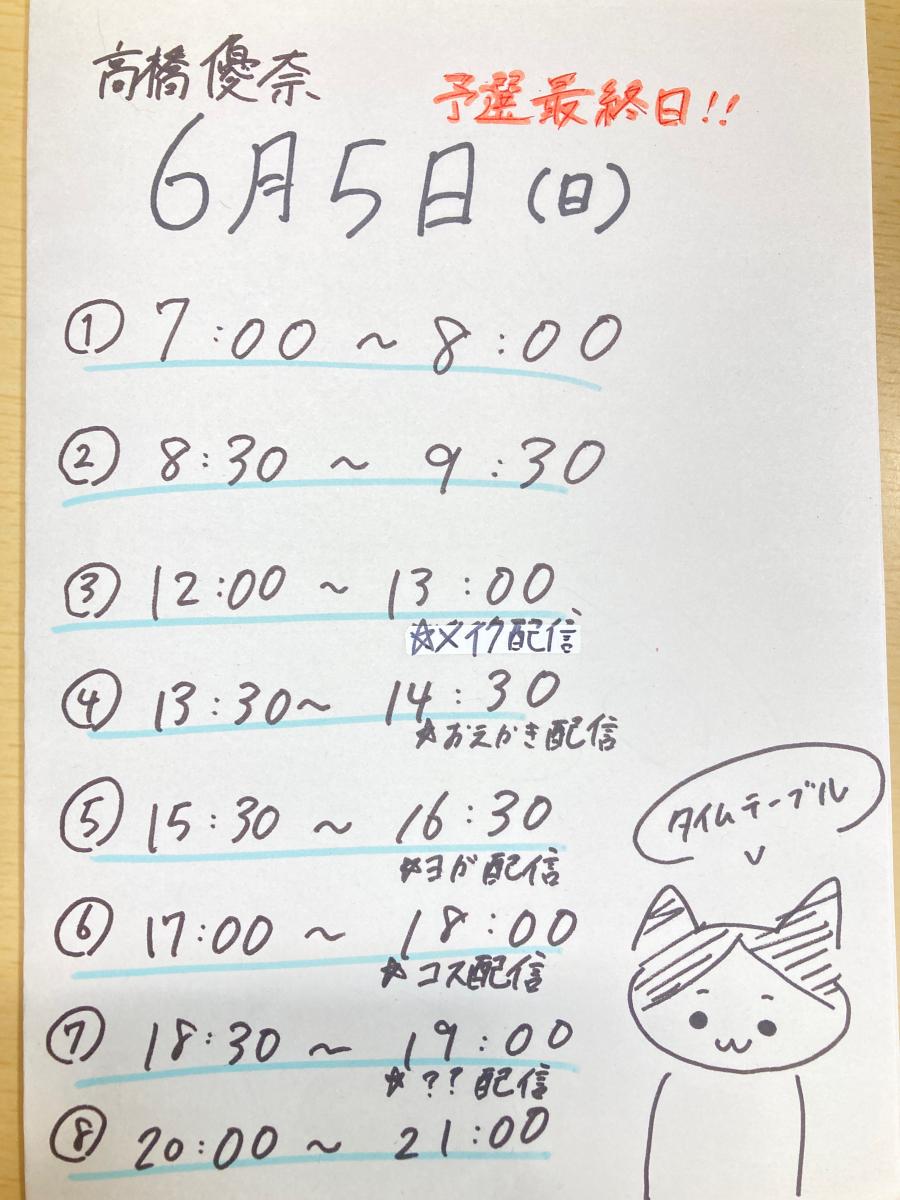 高橋優奈
予選最終日!!
6月5日(日)
① 7:00 ~ 8:00
② 8:30 ~ 9:30
③ 12:00 ~ 13:00
☆メイク配信
④ 13:30~ 14:30
☆おえかき配信
⑤ 15:30 ~ 16:30
☆ヨガ配信
⑥ 17:00 ~ 18:00
☆コス配信
⑦ 18:30 ~ 19:00
☆??配信
⑧ 20:00 ~ 21:00
タイムテーブル